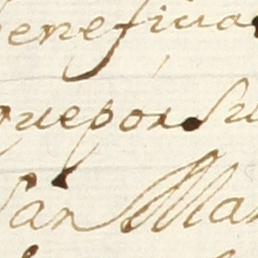 benefiua
que por su
San Mar